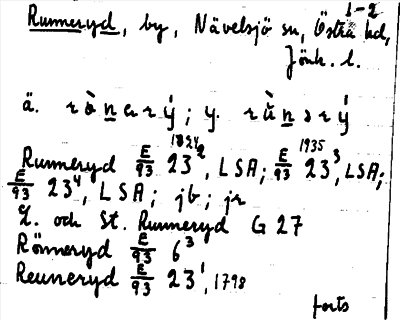 1-2
Runneryd, by, Nävelsjö sn, Östra hd,
Jönk. l.
ä. rònarý; y. rùnarý
Runneryd E/93 23², 1824, LSA; E/93 23³, 1935, LSA;
E/93 23⁴, LSA; jb; jr
L. och St. Runneryd G 27
Rönneryd E/93 6³
Reuneryd E/93 23¹, 1798
forts